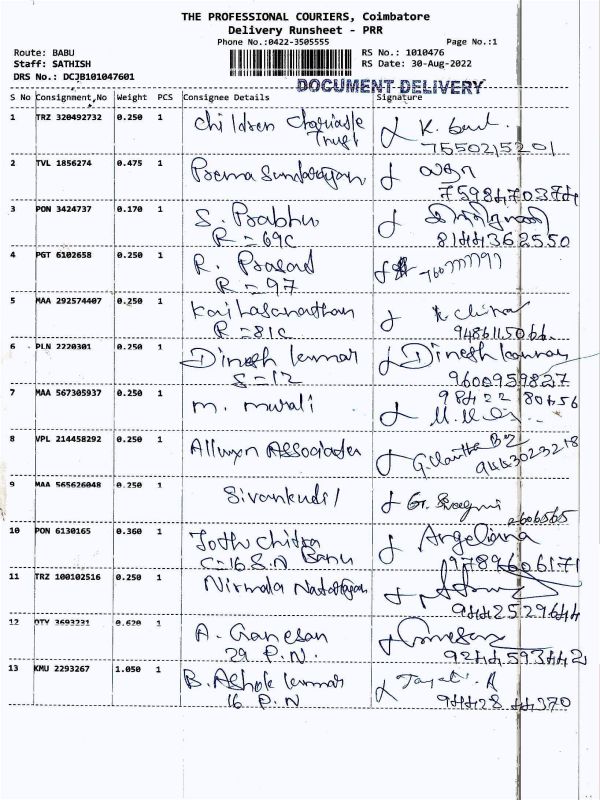 THE PROFESSIONAL COURIERS, Coimbatore
Delivery Runsheet - PRR
Phone No.:0422-3505555
Page No.:1
Route: BABU
RS No.: 1010476
Staff: SATHISH
RS Date: 30-Aug-2022
DRS No.: DCJB101047601
DOCUMENT DELIVERY
S No Consignment,No Weight PCS Consignee Details Signature
1 TRZ 320492732 0.250 1 Children Trust K.
7550215201
2 TVL 1856274 0.475 1
7598470374
3 PON 3424737 0.170 1 S. Prabhu
R=69C 8144362550
4 PGT 6102658 0.250 1 R. Prasad
R=97
5 MAA 292574407 0.250 1 Kailasanathan
R=81C 9486115066
6 PLN 2220301 0.250 1 Dinesh kumar Dinesh kumar
S=12 9600959827
7 MAA 567305937 0.250 1 M. Murali 98422 80456
8 VPL 214458292 0.250 1 Allwyn Associates
9443023218
9 MAA 565626048 0.250 1 Sivankudil
2606565
10 PON 6130165 0.360 1 Jothi Chitra Angelina
C=16 S.N Banu 9789606171
11 TRZ 100102516 0.250 1 Nirmala Natarajan
9442529644
12 OTY 3693231 0.620 1 A. Ganesan Ganesan
29 P.N. 9244593442
13 KMU 2293267 1.050 1 B. Ashok kumar
16 P.N 94428 44370